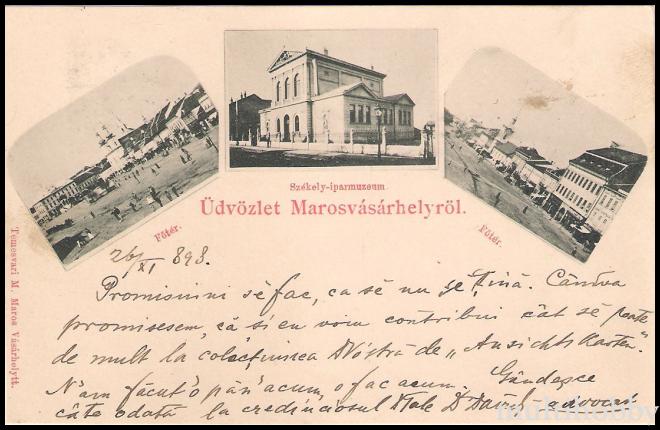 Székely-iparmuzeum
Üdvözlet Marosvásárhelyről.
Főtér.
Főtér.
Temesvari M. Maros Vásárhelytt.
26/XI 898.
Promisiuni se fac, ca sĕ nu se țină. Cândva
promisesem, că si eu voiu contribui cât sĕ poate
de mult la colecțiunea Dvóstră de „Ansichts Karten".
N'am făcut'o păn'acum, o fac acum. Gândesce
câte odată la credinciosul Dtale advocat
multihobby